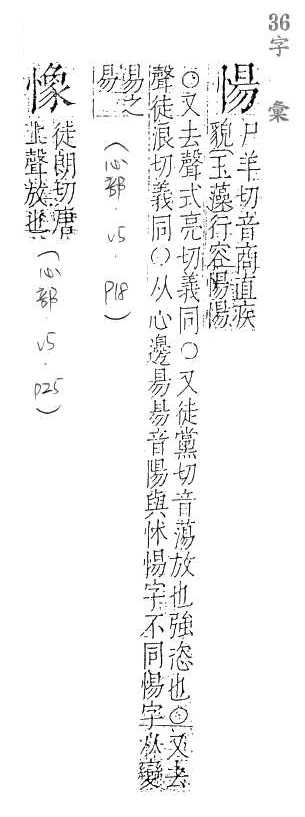 36
字彙
愓
尸羊切音商直疾
貌玉藻行容愓愓
○又去聲式亮切義同○又徒黨切音蕩放也強恣也○又去
聲徒浪切義同○从心邊昜昜音陽與怵惕字不同惕字从變
易之
易
(心部.v5.p18)
憿
徒朗切唐
上聲放也
(心部.v5.p25)